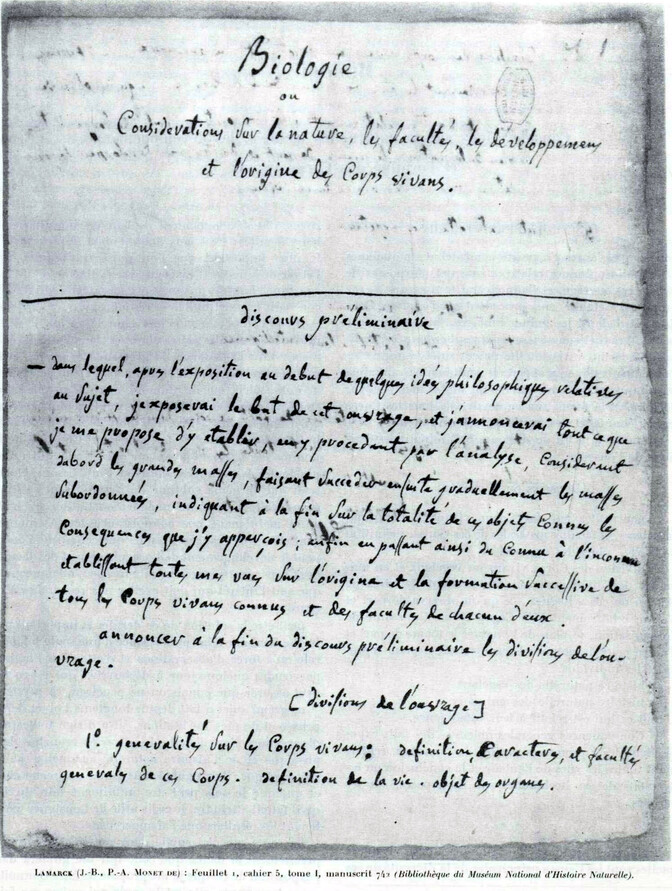 1
Biologie
ou
Considerations sur la nature, les facultés, les développemens
et l'origine des Corps vivans.
discours préliminaire
— dans lequel, apres l'exposition au debut de quelques idées philosophiques relatives
au sujet, j'exposerai le but de cet ouvrage, et j'annoncerai tout ce que
je me propose d'y etablir, en y procedant par l'analyse, Considerant
dabord les grandes masses, faisant succeder ensuite graduellement les masses
subordonnées, indiquant à la fin sur la totalité de ces objets Connus les
Consequences que j'y apperçois; enfin en passant ainsi du Connu à l'inconnu
etablissant toutes mes vues sur l'origine et la formation successive de
tous les Corps vivans connus et des facultés de chacun d'eux.
annoncer à la fin du discours préliminaire les divisions de l'ou-
vrage.
[divisions de l'ouvrage]
1º. generalités sur les Corps vivans: definition, Caracteres, et facultés
generales de ces Corps. definition de la vie. objet des organes.
LAMARCK (J.-B., P.-A. MONET DE) : Feuillet 1, cahier 5, tome I, manuscrit 742 (Bibliothèque du Muséum National d'Histoire Naturelle).